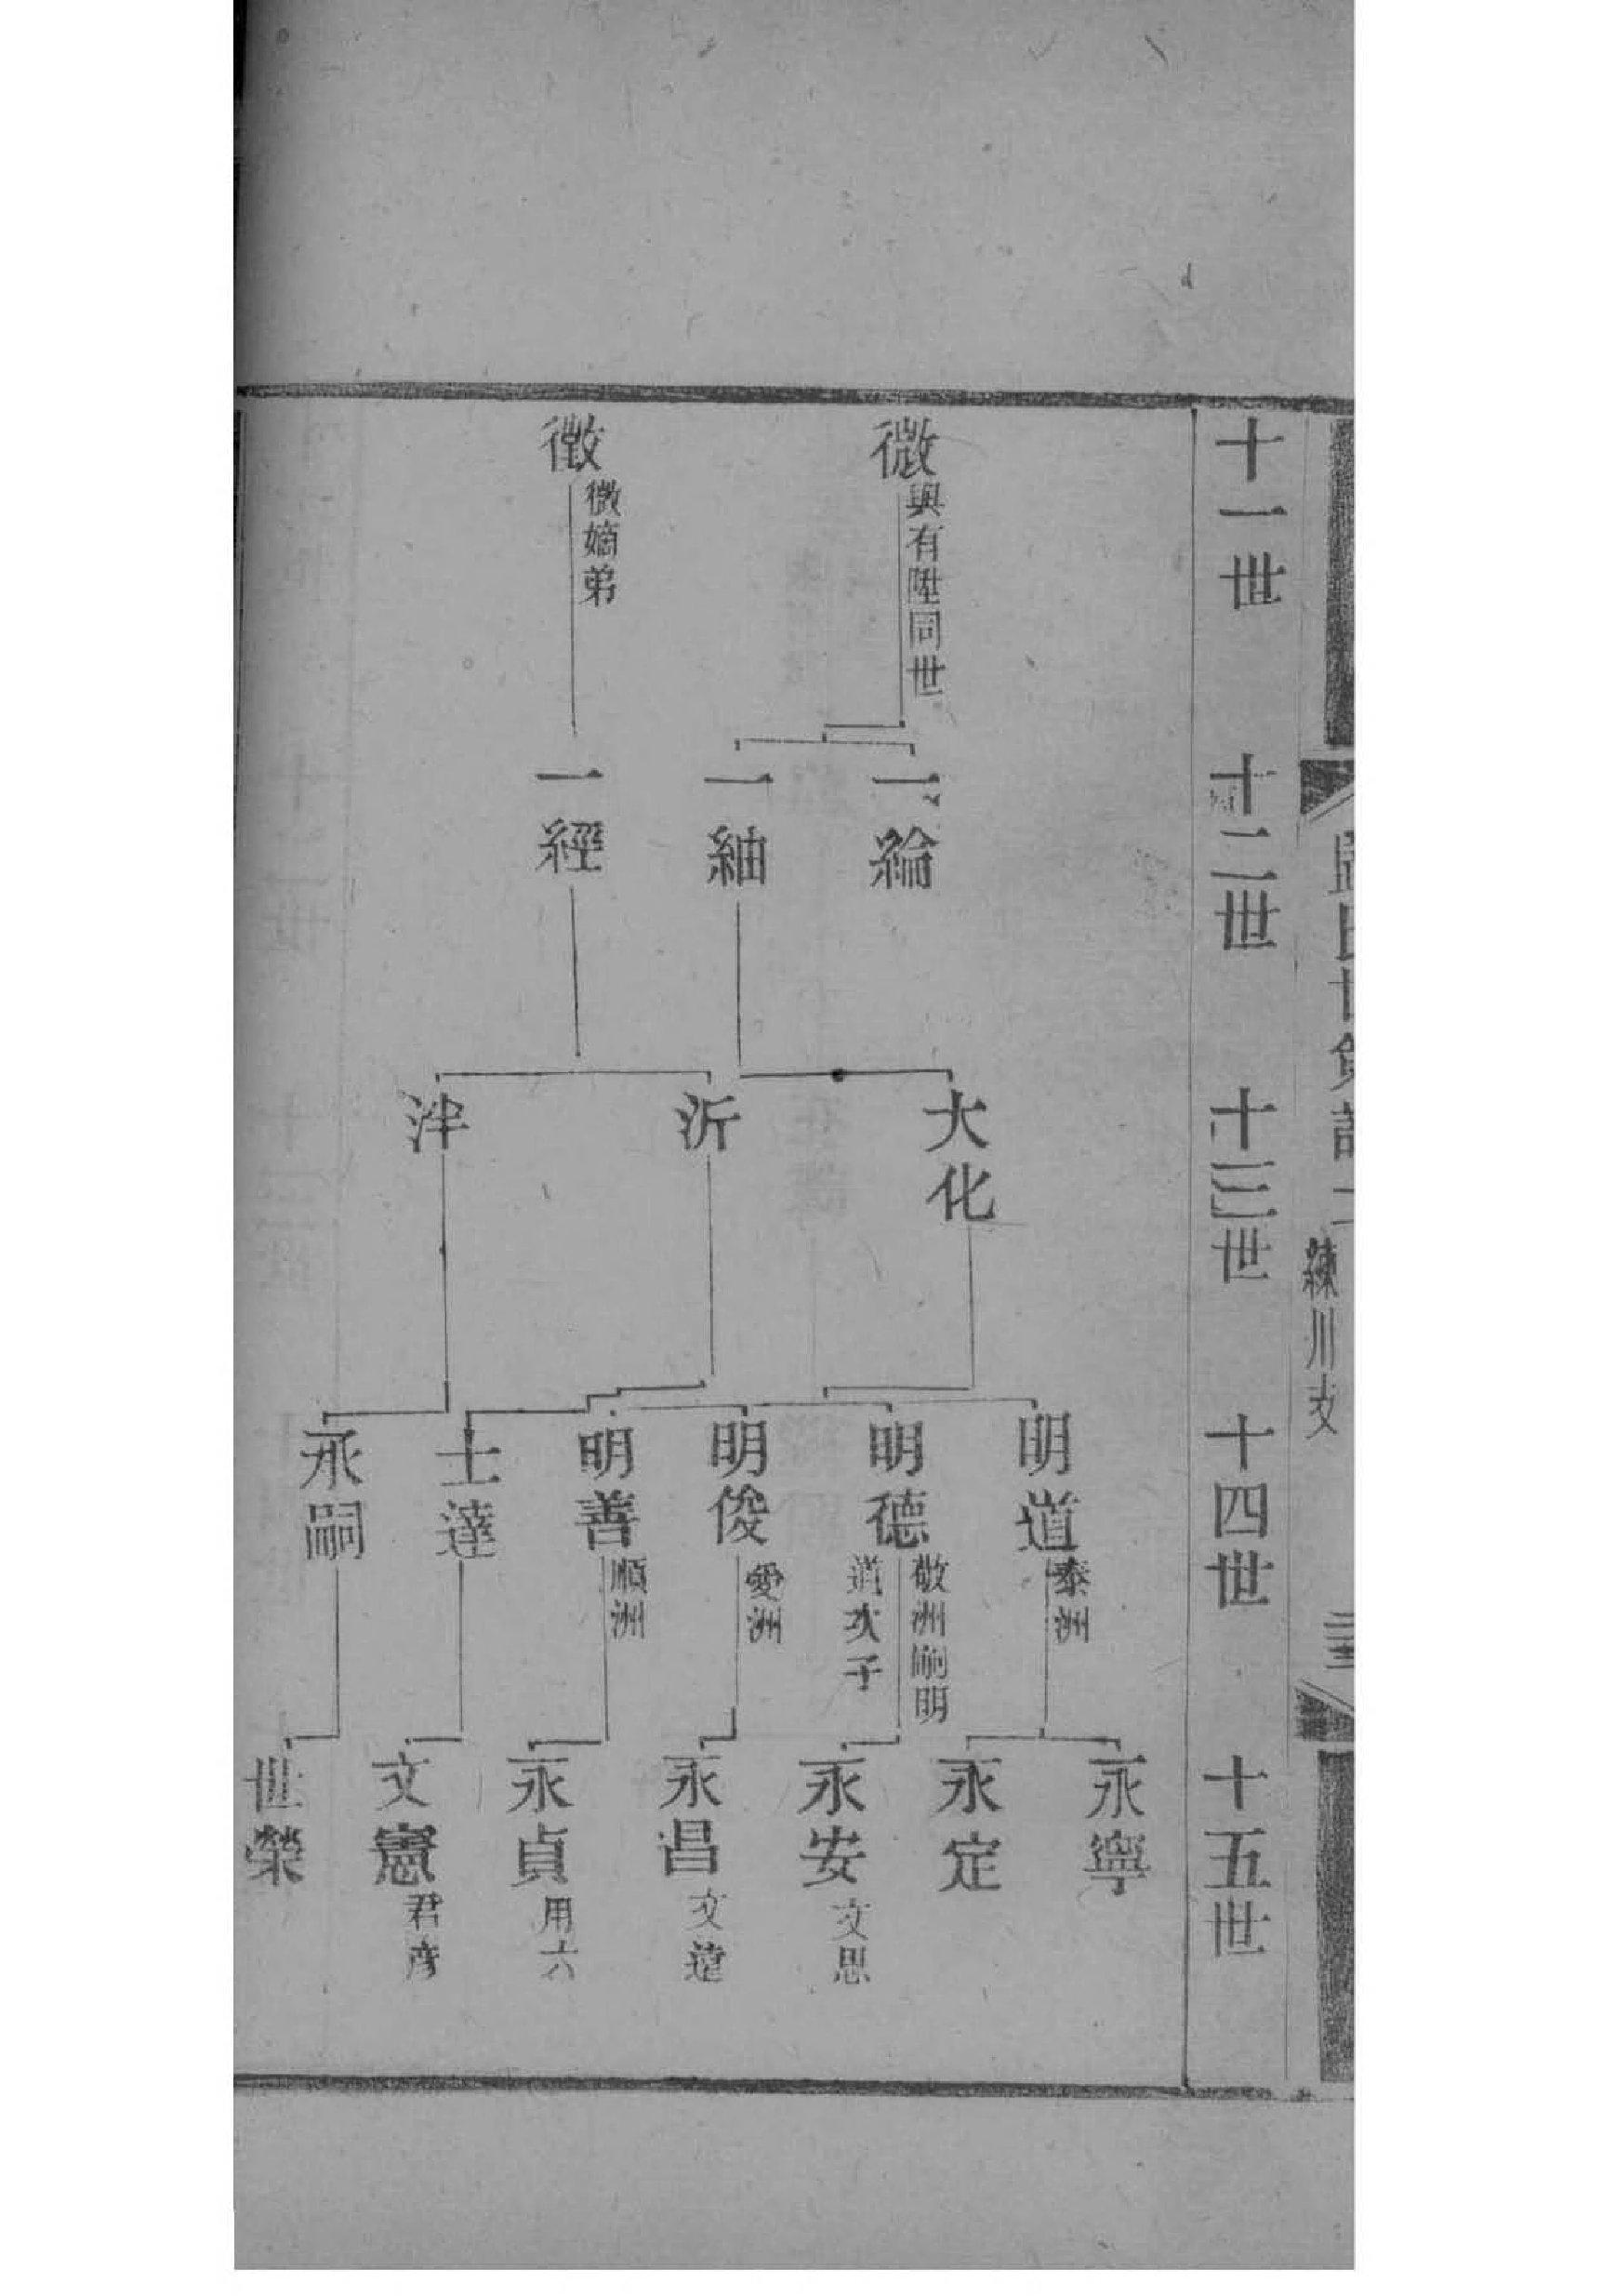 歸氏世譜
練川支
十一世
十二世
十三世
十四世
十五世
微
與有陞同世
徵
微嫡弟
一綸
一紬
一經
大化
沂
泮
明道
泰洲
明德
敬洲嗣明
道次子
明俊
愛洲
明善
順洲
士達
永嗣
永寧
永定
永安
文思
永昌
文遠
永貞
用六
文憲
君彥
世榮